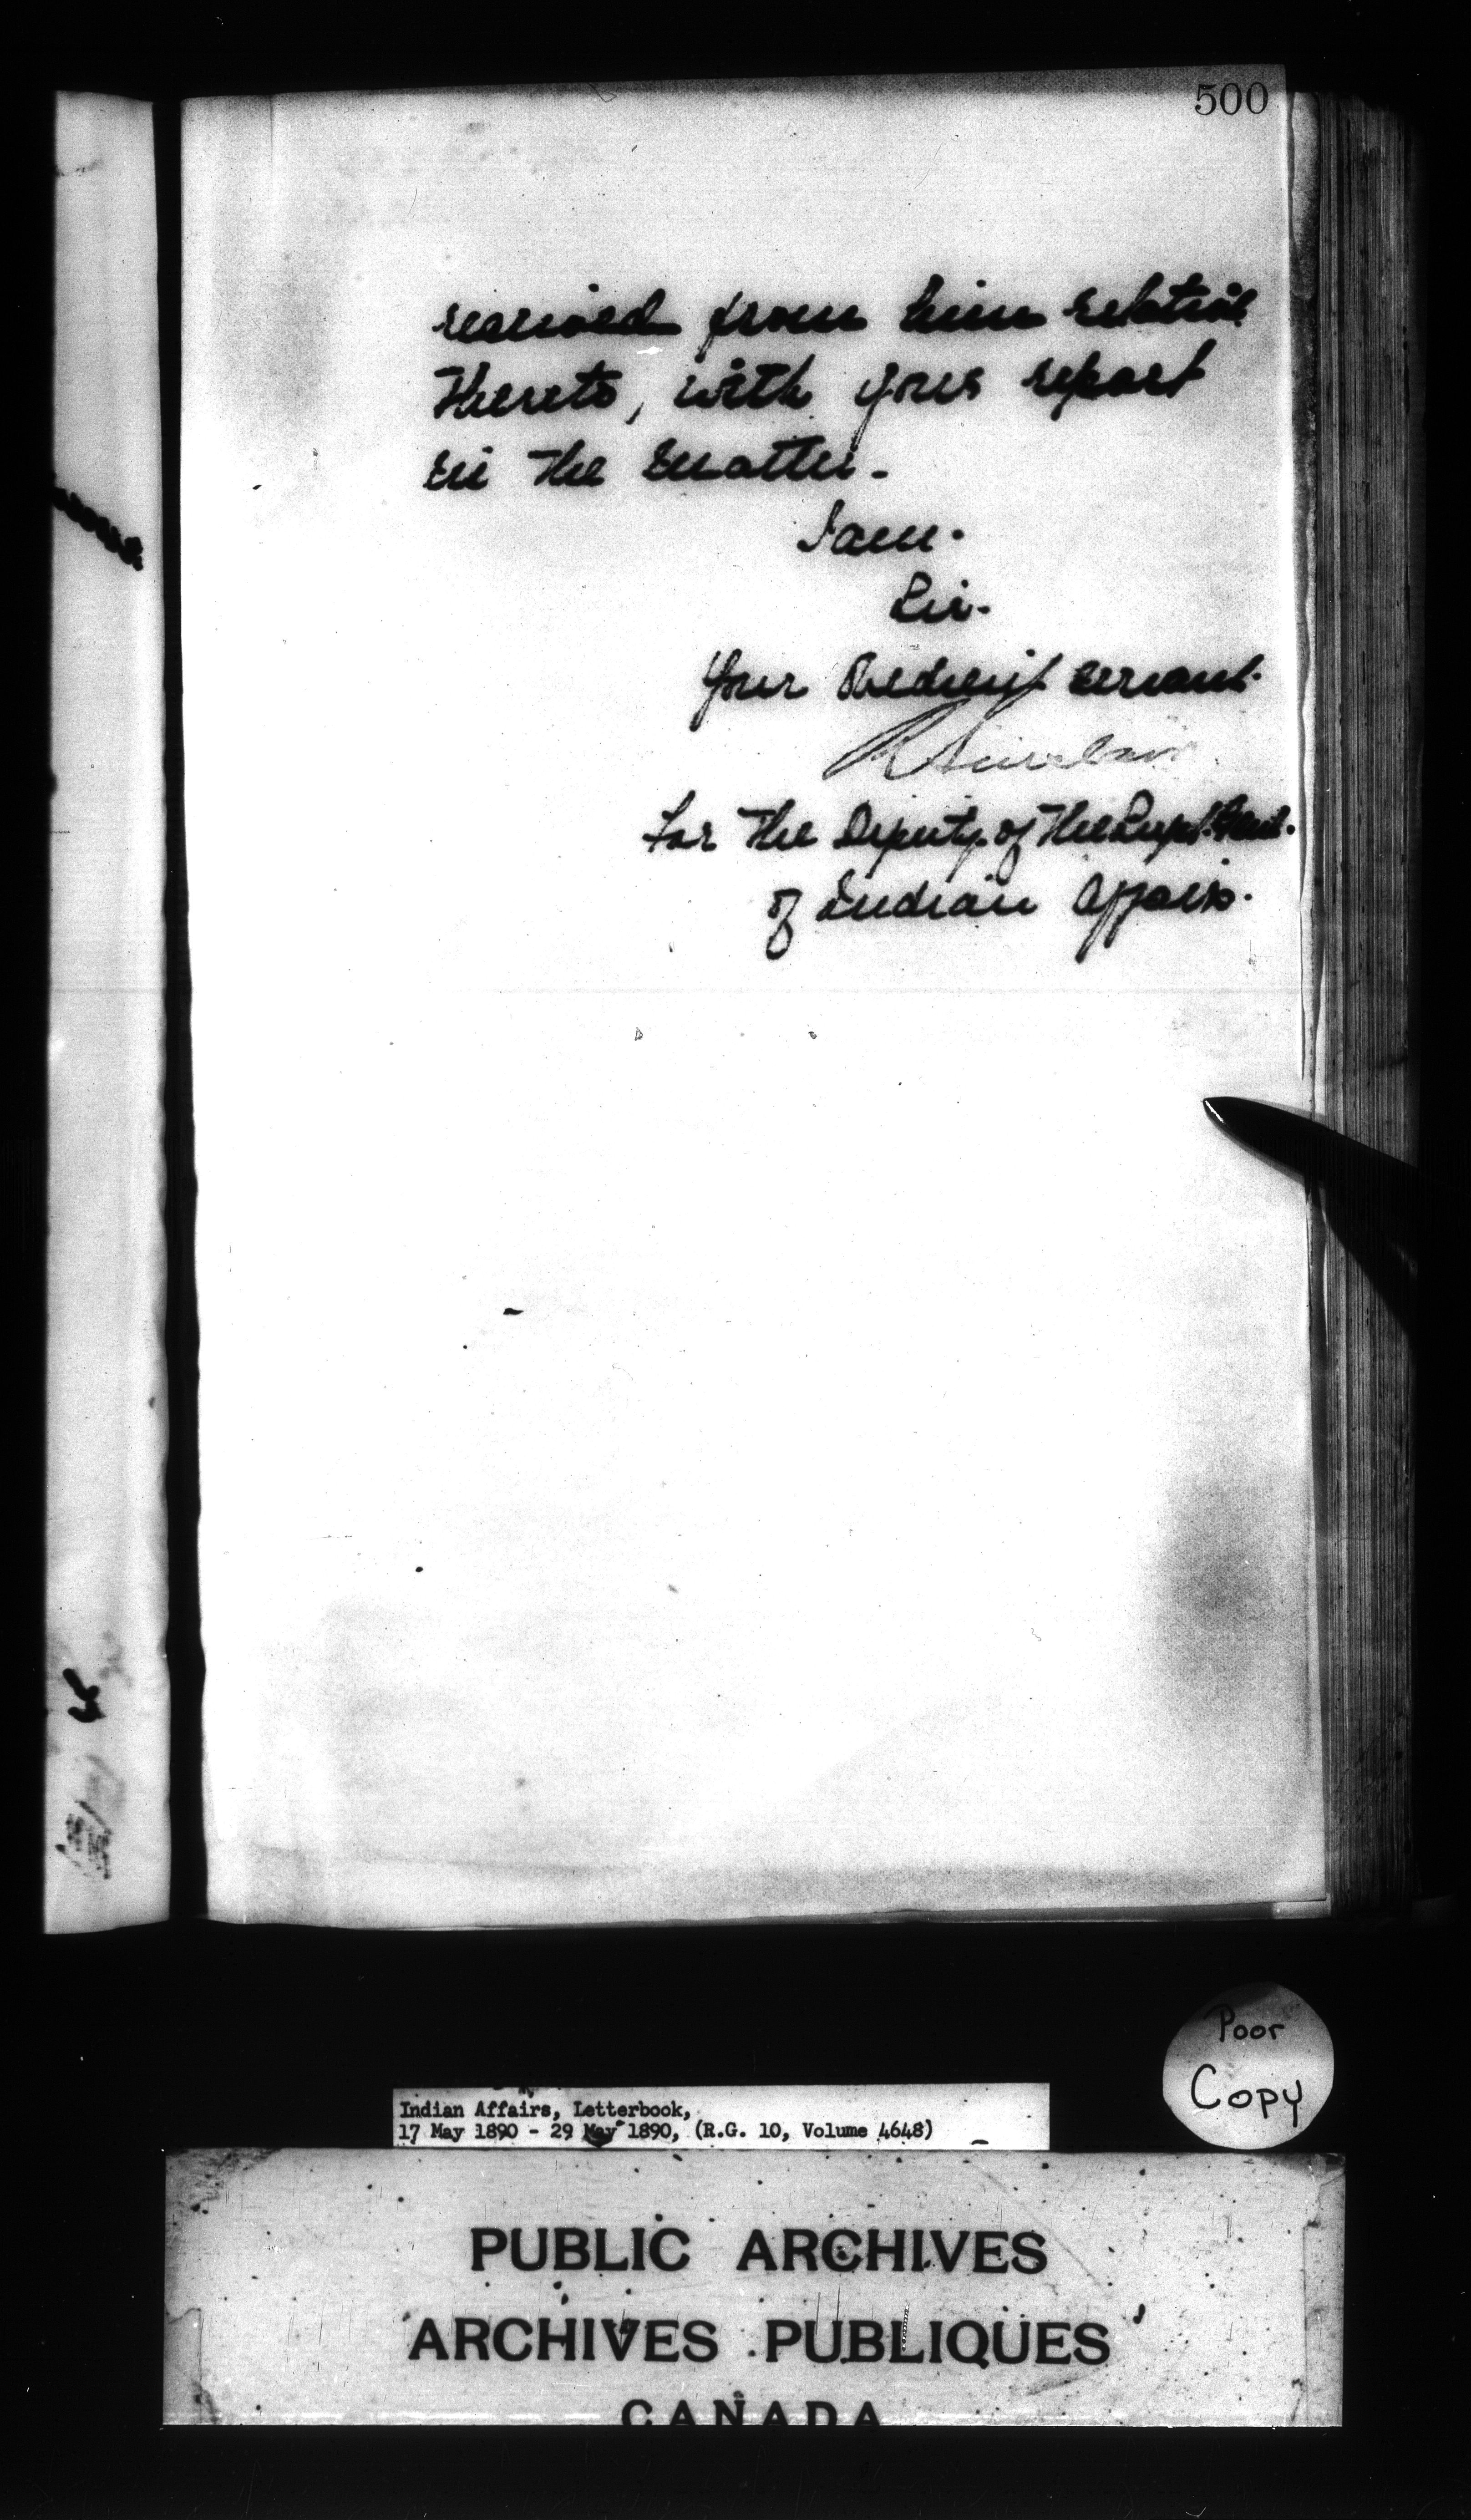 500
received from him relative
thereto, with your report
on the matter.
I am.
Sir.
Your Obedient servant.
R Sinclair
For the Deputy of the Supt. Genl.
of Indian Affairs.
Poor
Copy
Indian Affairs, Letterbook,
17 May 1890 - 29 May 1890, (R.G. 10, Volume 4648)
PUBLIC ARCHIVES
ARCHIVES PUBLIQUES
CANADA